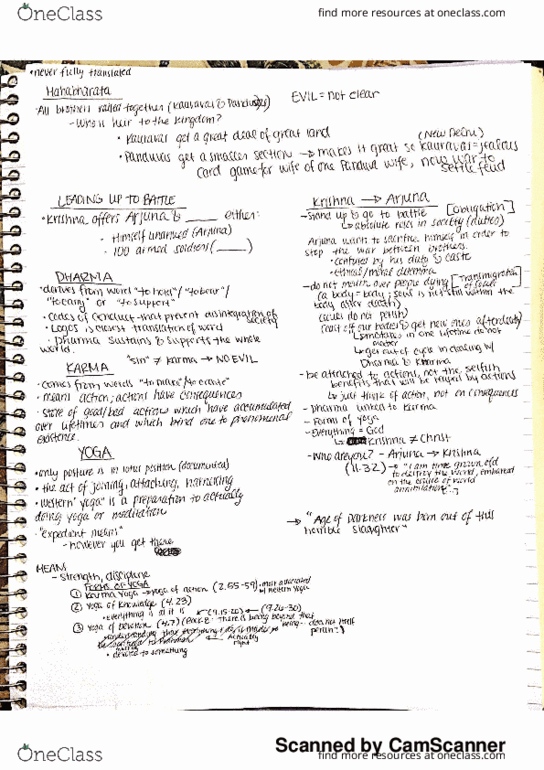 OneClass
find more resources at oneclass.com
• never fully translated
Mahabharata
EVIL = not clear
- All brothers raised together (Kauravas & Pandavas)
- Who is heir to the kingdom?
• Kauravas get a great deal of great land
(New Delhi)
• Pandavas get a smaller section → makes it great so Kauravas = jealous
card game for wife of one Pandava wife, now war to
settle feud
LEADING UP TO BATTLE
• Krishna offers Arjuna & ____ either:
• Himself unarmed (Arjuna)
• 100 armed soldiers (____)
DHARMA
• derives from word "to hold"/"to bear"/
"to carry" or "to support"
• Codes of conduct that prevent disintegration of
society
• Logos is closest translation of word
• Dharma sustains & supports the whole
world.
"sin" ≠ karma → NO EVIL
KARMA
- comes from words "to make/to create"
• means action; actions have consequences
• store of good/bad actions which have accumulated
over lifetimes and which bind one to phenomenal
existence.
YOGA
• only posture is in lotus position (documented)
• the act of joining, attaching, harnessing
• Western "yoga" is a preparation to actually
doing yoga or meditation
• "expedient means"
- however you get there
MEANS
- strength, discipline
FORMS OF YOGA
① Karma Yoga → yoga of action (2.55-59) most associated
w/ western yoga
② Yoga of Knowledge (4.23)
• everything is as it is (9.15-20) ← (9.26-30)
③ Yoga of Devotion (4.7) There is being beyond that
• devote to something
Krishna → Arjuna
- Stand up & go to battle [obligation]
↳ absolute roles in society (duties)
Arjuna wants to sacrifice himself in order to
stop the war between brothers.
• confused by his duty & caste
• ethical/moral dilemma
- do not mourn over people dying [transmigration
of souls]
(a body = body; soul is not still within the
body after death)
(souls do not perish)
(cast off our bodies & get new ones after death)
↳ emotions in one lifetime do not
matter
↳ get out of cycle in dealing w/
Dharma & Karma
- be attached to actions, not the selfish
benefits that will be reaped by actions
↳ just think of action, not on consequences
- Dharma linked to Karma
- Forms of yoga
- Everything = God
↳ Krishna ≠ Christ
- Who are you? - Arjuna → Krishna
(11.32) → "I am time grown old
to destroy the world, embarked
on the course of world
annihilation"
→ "Age of Darkness was born out of this
horrible slaughter"
Scanned by CamScanner
OneClass
find more resources at oneclass.com